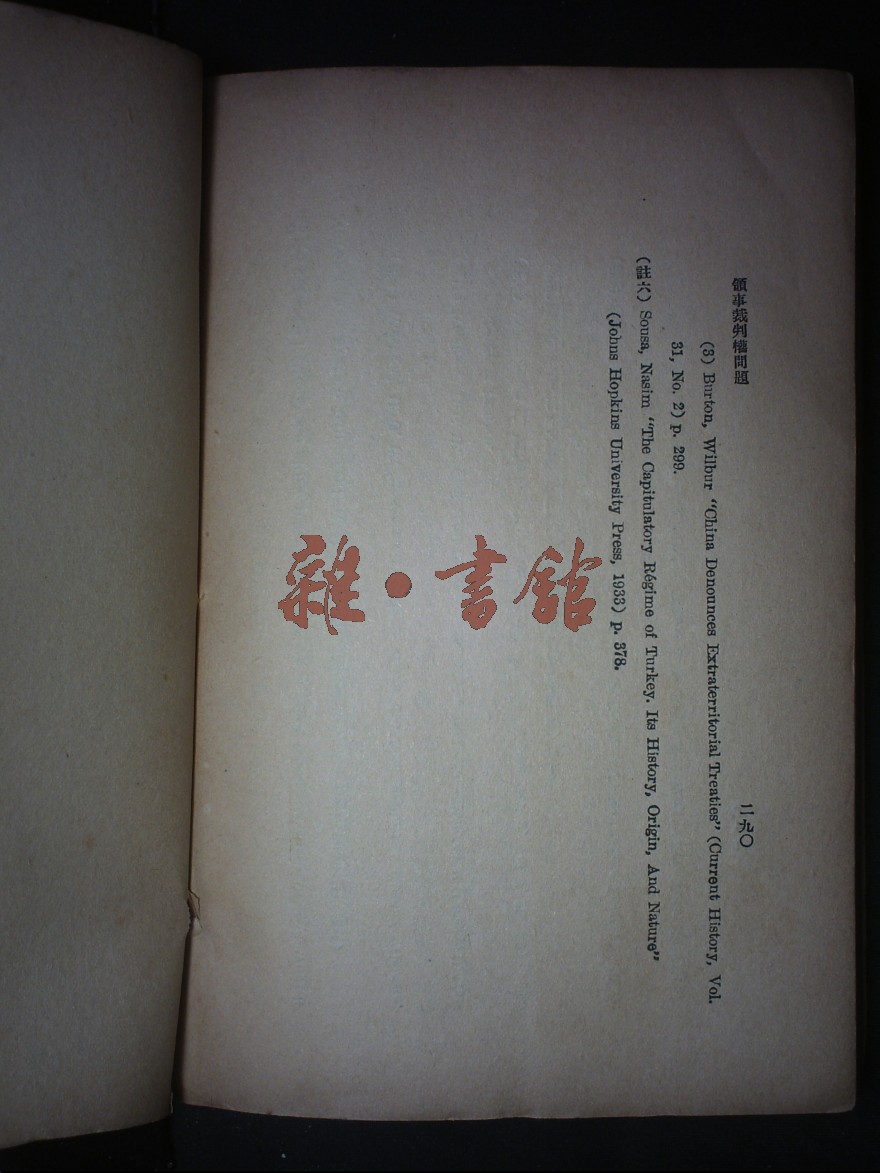 領事裁判權問題
二九〇
(3) Burton, Wilbur “China Denounces Extraterritorial Treaties” (Current History, Vol.
31, No. 2) p. 299.
(註六) Sousa, Nasim “The Capitulatory Régime of Turkey. Its History, Origin, And Nature”
(Johns Hopkins University Press, 1933) p. 378.
雜・書館